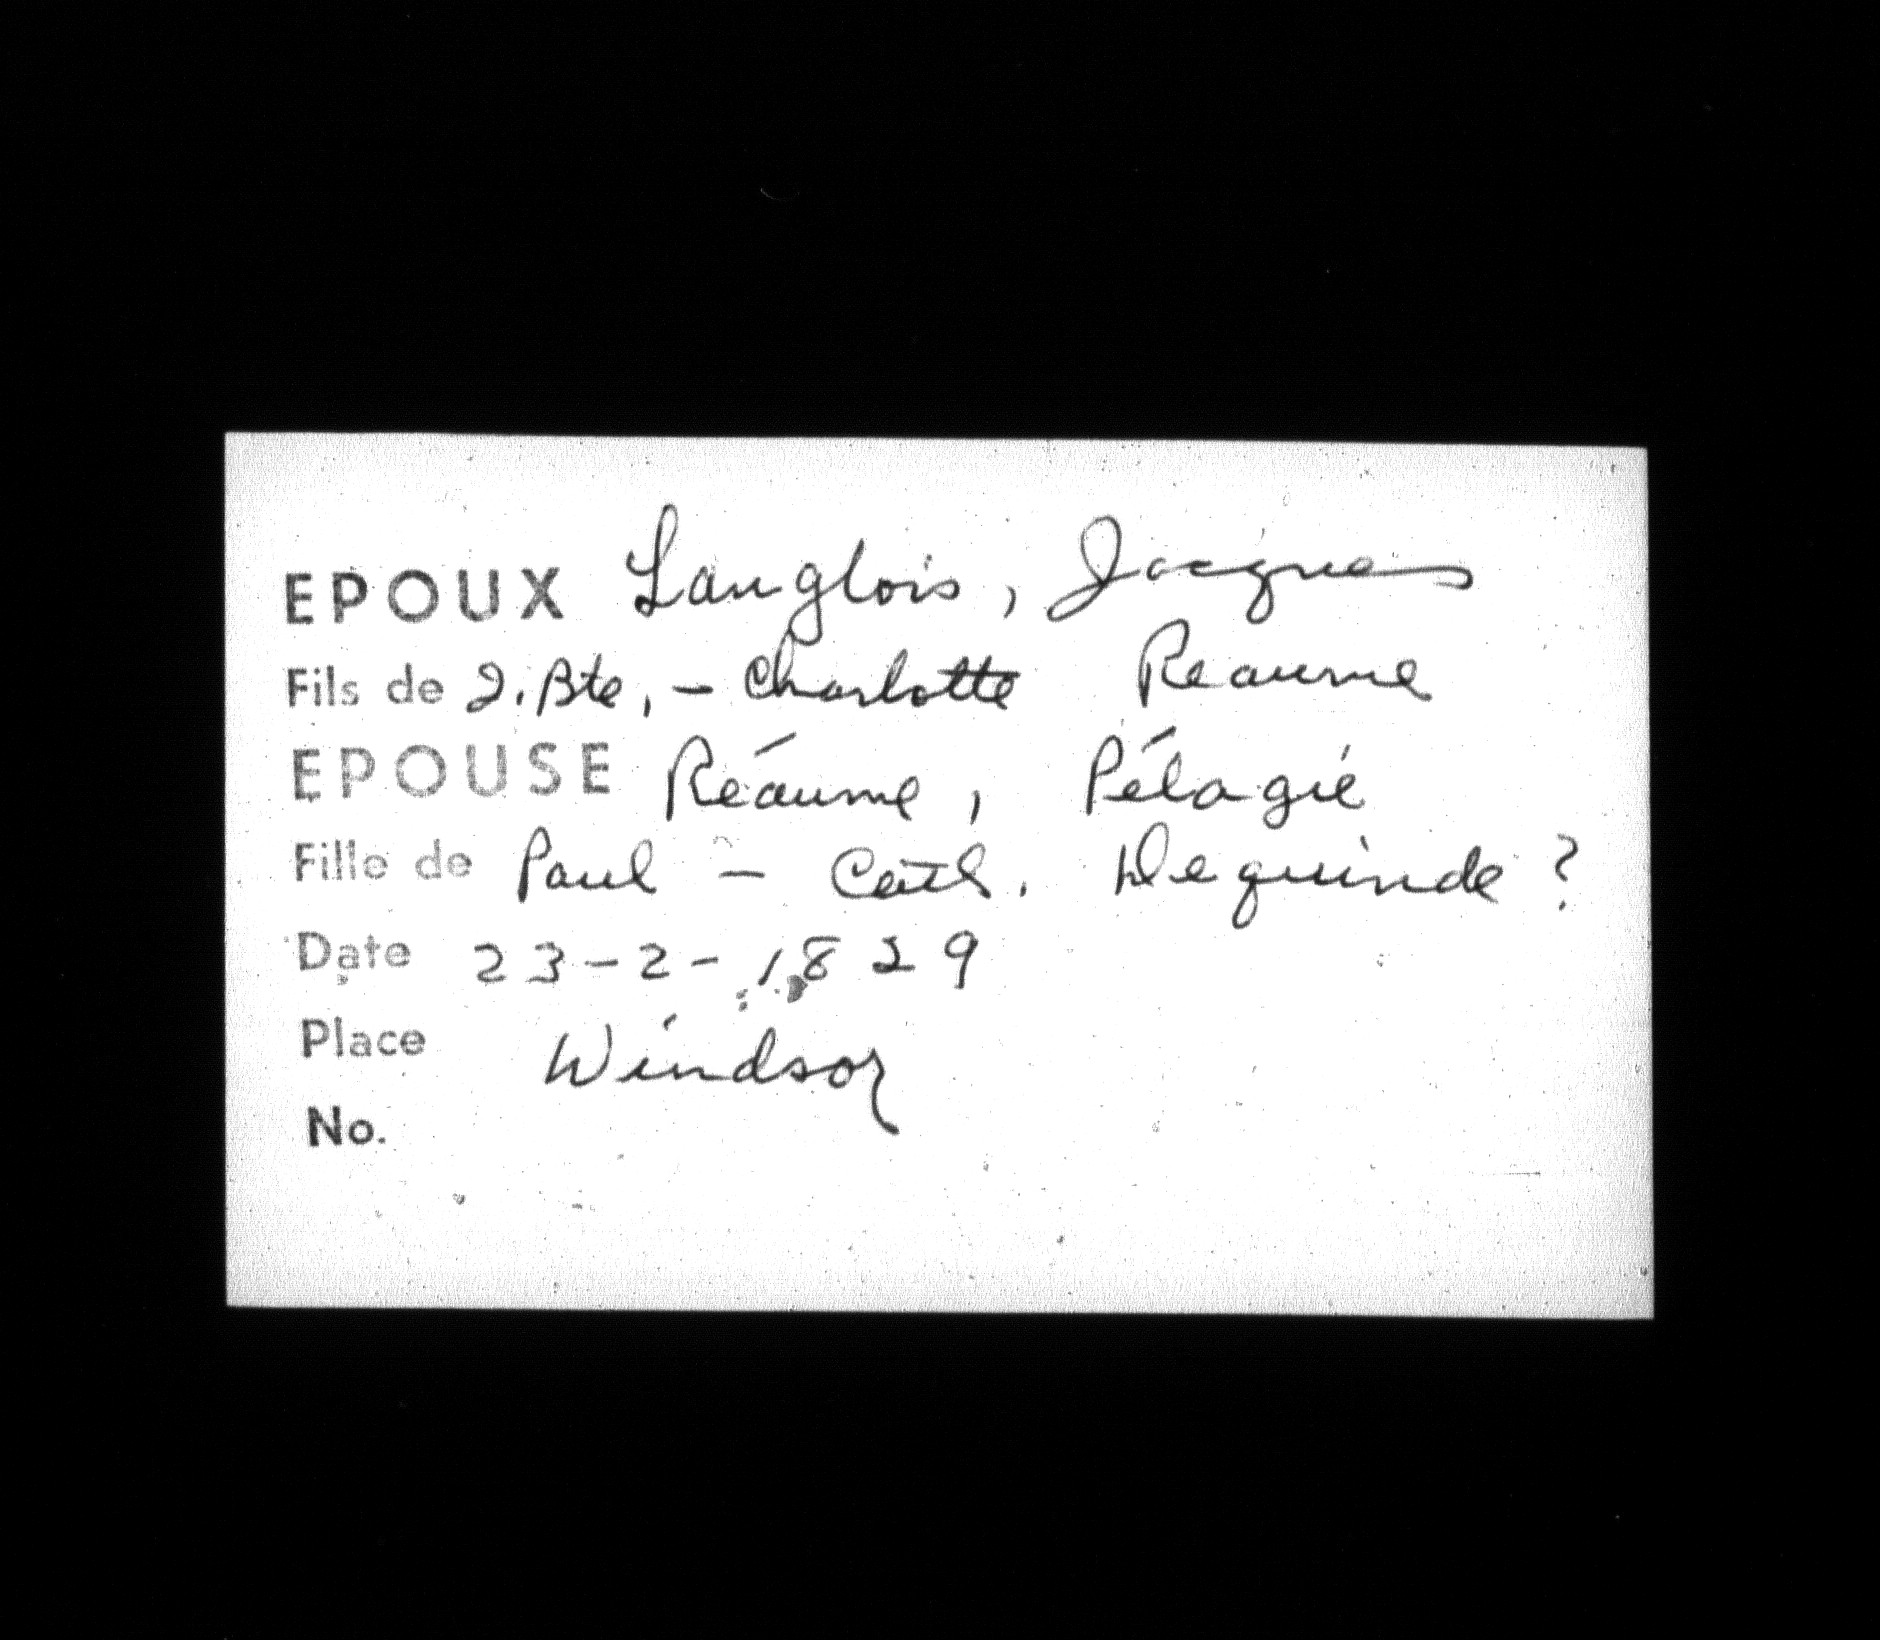 EPOUX Langlois, Jacques
Fils de J. Bte, - Charlotte Reaume
EPOUSE Réaume, Pélagie
Fille de Paul - Cath. Dequindre ?
Date 23-2-1829
Place Windsor
No.